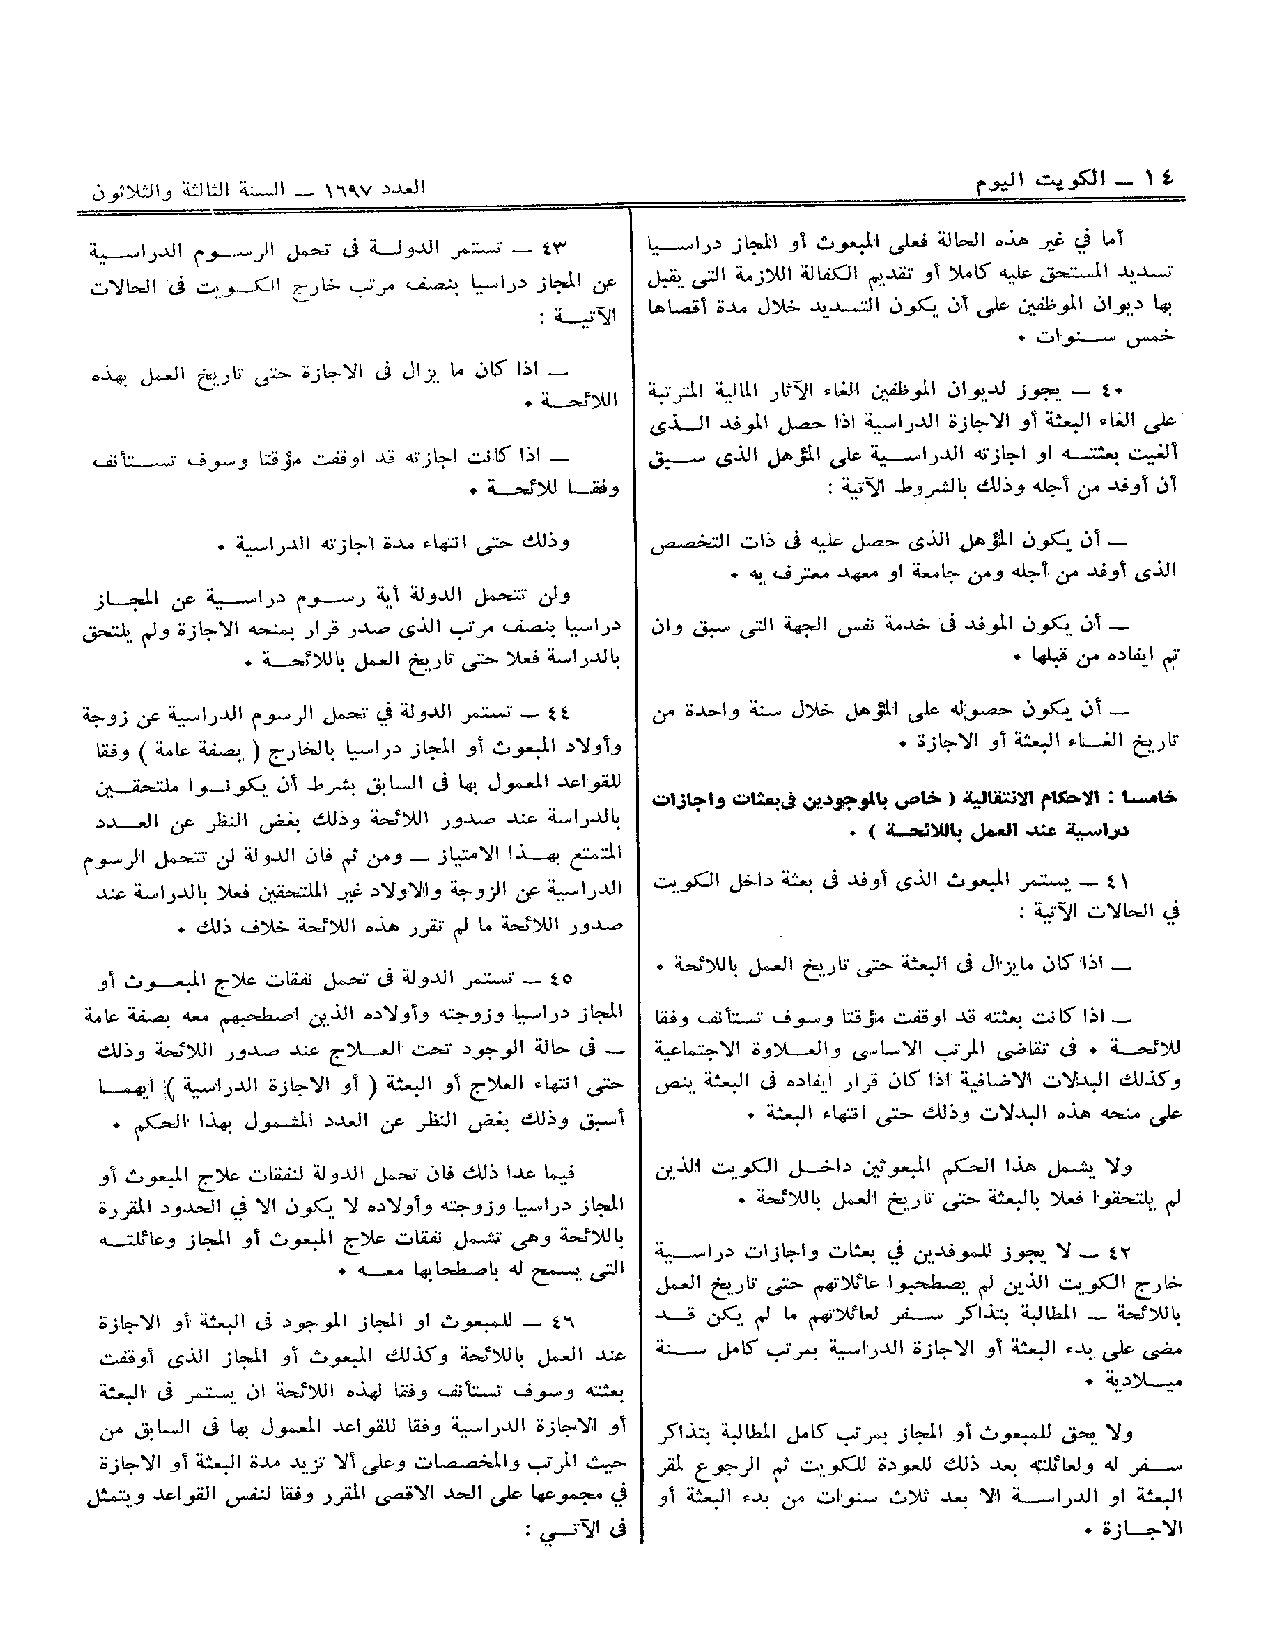 ١٤ — الكويت اليوم
العدد ١٦٩٧ — السنة الثالثة والثلاثون
أما في غير هذه الحالة فعلى المبعوث أو المجاز دراسيا
تسديد المستحق عليه كاملا أو تقديم الكفالة اللازمة التى يقبل
بها ديوان الموظفين على أن يكون التسديد خلال مدة أقصاها
خمس سنوات •
٤٠ — يجوز لديوان الموظفين الغاء الآثار المالية المترتبة
على الغاء البعثة أو الاجازة الدراسية اذا حصل الموفد الذى
ألغيت بعثته او اجازته الدراسية على المؤهل الذى سبق
أن أوفد من أجله وذلك بالشروط الآتية :
— أن يكون المؤهل الذى حصل عليه فى ذات التخصص
الذى أوفد من أجله ومن جامعة او معهد معترف به •
— أن يكون الموفد فى خدمة نفس الجهة التى سبق وان
تم ايفاده من قبلها •
— أن يكون حصوله على المؤهل خلال سنة واحدة من
تاريخ الغاء البعثة أو الاجازة •
خامسا : الاحكام الانتقالية ( خاص بالموجودين فى بعثات واجازات
دراسية عند العمل باللائحة ) •
٤١ — يستمر المبعوث الذى أوفد فى بعثة داخل الكويت
في الحالات الآتية :
— اذا كان مايزال فى البعثة حتى تاريخ العمل باللائحة •
— اذا كانت بعثته قد اوقفت مؤقتا وسوف تستأنف وفقا
للائحة • فى تقاضى المرتب الاساسى والعلاوة الاجتماعية
وكذلك البدلات الاضافية اذا كان قرار ايفاده فى البعثة ينص
على منحه هذه البدلات وذلك حتى انتهاء البعثة •
ولا يشمل هذا الحكم المبعوثين داخل الكويت الذين
لم يلتحقوا فعلا بالبعثة حتى تاريخ العمل باللائحة •
٤٢ — لا يجوز للموفدين في بعثات واجازات دراسية
خارج الكويت الذين لم يصطحبوا عائلاتهم حتى تاريخ العمل
باللائحة — المطالبة بتذاكر سفر لعائلاتهم ما لم يكن قد
مضى على بدء البعثة أو الاجازة الدراسية بمرتب كامل سنة
ميلادية •
ولا يحق للمبعوث أو المجاز بمرتب كامل المطالبة بتذاكر
سفر له ولعائلته بعد ذلك للعودة للكويت ثم الرجوع لمقر
البعثة او الدراسة الا بعد ثلاث سنوات من بدء البعثة أو
الاجازة •
٤٣ — تستمر الدولة فى تحمل الرسوم الدراسية
عن المجاز دراسيا بنصف مرتب خارج الكويت فى الحالات
الآتية :
— اذا كان ما يزال فى الاجازة حتى تاريخ العمل بهذه
اللائحة •
— اذا كانت اجازته قد اوقفت مؤقتا وسوف تستأنف
وفقا للائحة •
وذلك حتى انتهاء مدة اجازته الدراسية •
ولن تتحمل الدولة أية رسوم دراسية عن المجاز
دراسيا بنصف مرتب الذى صدر قرار بمنحه الاجازة ولم يلتحق
بالدراسة فعلا حتى تاريخ العمل باللائحة •
٤٤ — تستمر الدولة في تحمل الرسوم الدراسية عن زوجة
وأولاد المبعوث أو المجاز دراسيا بالخارج ( بصفة عامة ) وفقا
للقواعد المعمول بها فى السابق بشرط أن يكونوا ملتحقين
بالدراسة عند صدور اللائحة وذلك بغض النظر عن العدد
المتمتع بهذا الامتياز — ومن ثم فان الدولة لن تتحمل الرسوم
الدراسية عن الزوجة والاولاد غير الملتحقين فعلا بالدراسة عند
صدور اللائحة ما لم تقرر هذه اللائحة خلاف ذلك •
٤٥ — تستمر الدولة فى تحمل نفقات علاج المبعوث أو
المجاز دراسيا وزوجته وأولاده الذين اصطحبهم معه بصفة عامة
— فى حالة الوجود تحت العلاج عند صدور اللائحة وذلك
حتى انتهاء العلاج أو البعثة ( أو الاجازة الدراسية ) ايهما
أسبق وذلك بغض النظر عن العدد المشمول بهذا الحكم •
فيما عدا ذلك فان تحمل الدولة لنفقات علاج المبعوث أو
المجاز دراسيا وزوجته وأولاده لا يكون الا في الحدود المقررة
باللائحة وهى تشمل نفقات علاج المبعوث أو المجاز وعائلته
التى يسمح له باصطحابها معه •
٤٦ — للمبعوث او المجاز الموجود فى البعثة أو الاجازة
عند العمل باللائحة وكذلك المبعوث أو المجاز الذى أوقفت
بعثته وسوف تستأنف وفقا لهذه اللائحة ان يستمر فى البعثة
أو الاجازة الدراسية وفقا للقواعد المعمول بها فى السابق من
حيث المرتب والمخصصات وعلى ألا تزيد مدة البعثة أو الاجازة
في مجموعها على الحد الاقصى المقرر وفقا لنفس القواعد ويتمثل
فى الآتي :